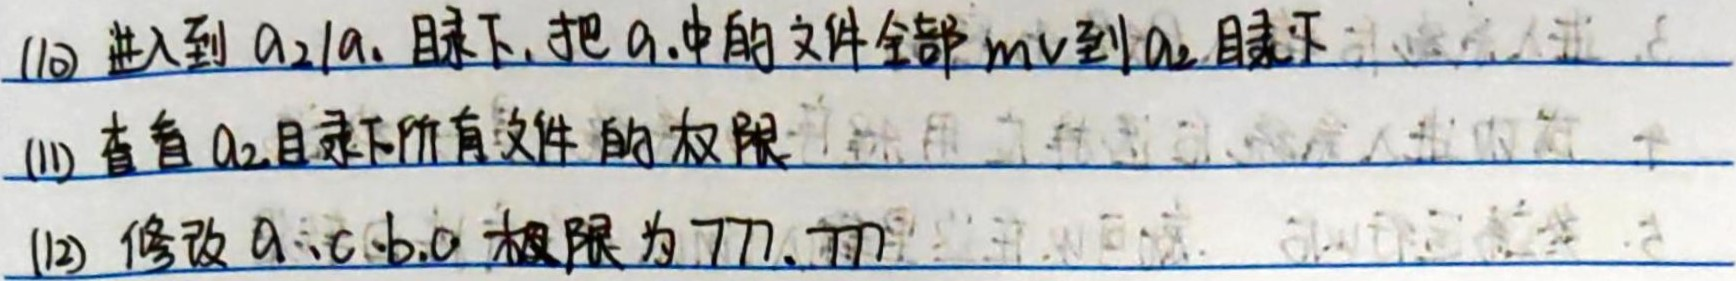 (10) 进入到 a2/a. 目录下, 把 a.中的文件全部 mv到 a2 目录下
(11) 查看 a2目录下所有文件的权限
(12) 修改 a.c.b.c 权限为 777.777